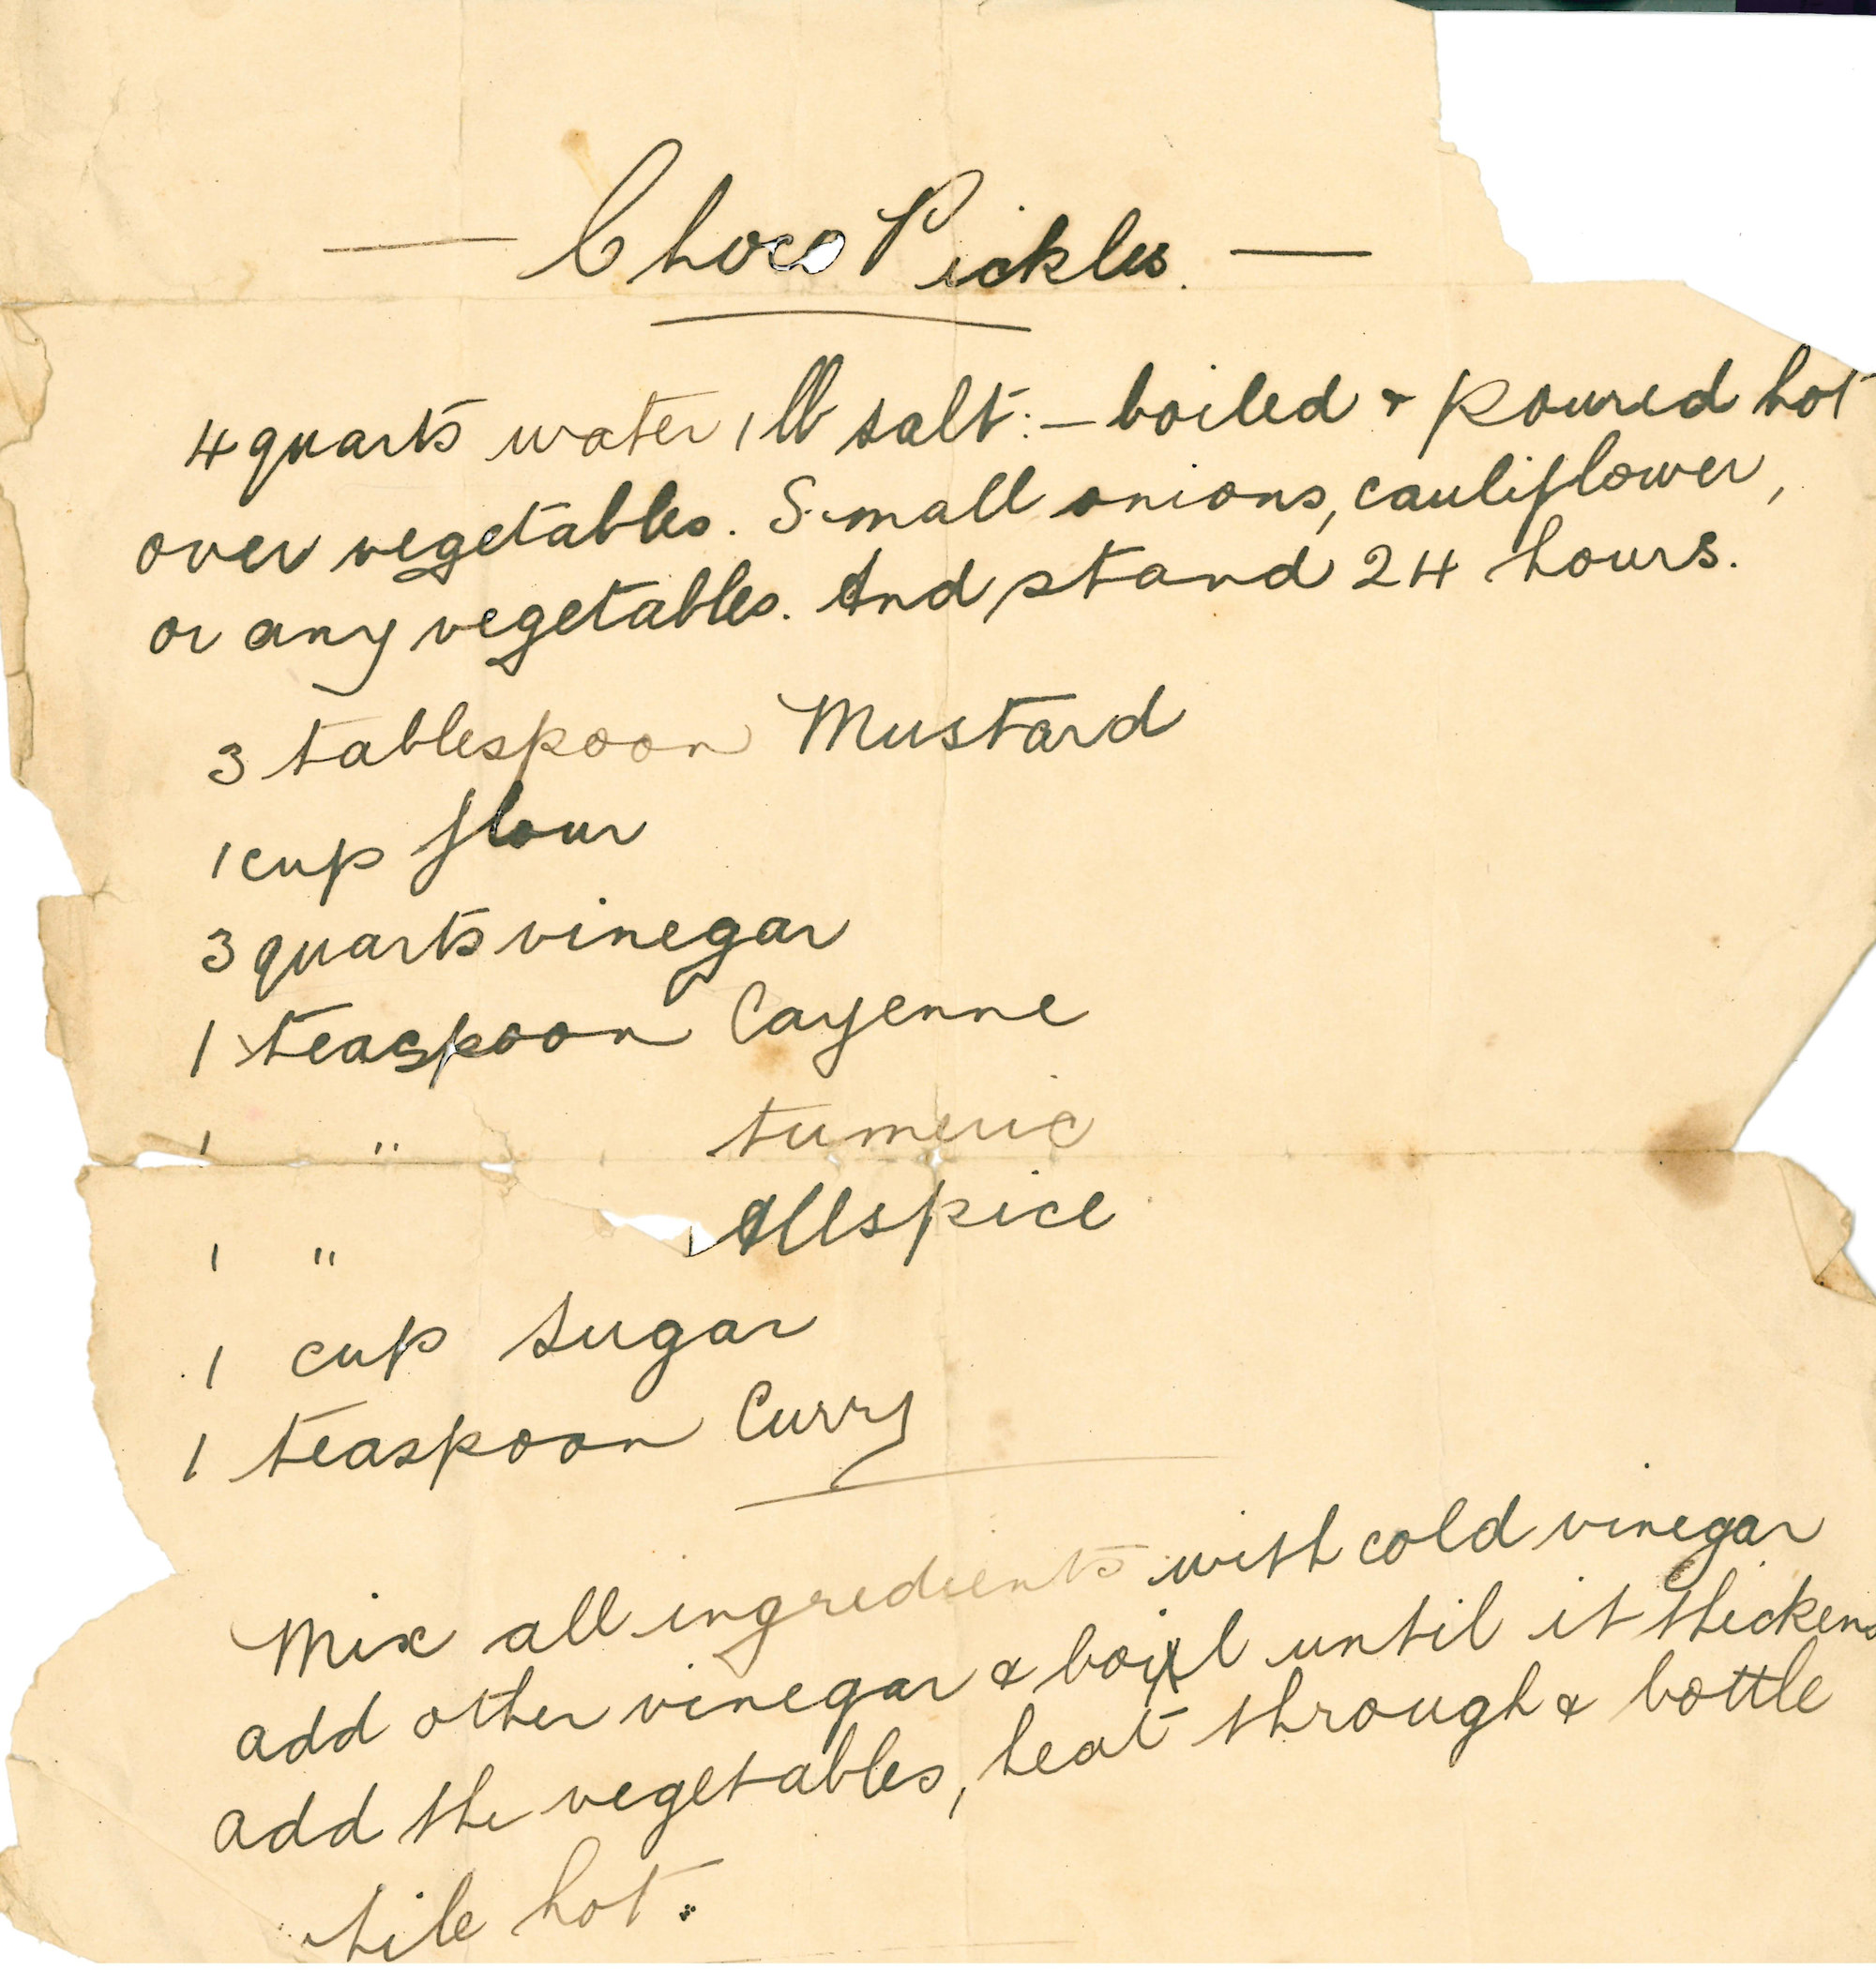 — Choco Pickles. —
4 quarts water 1 lb salt:- boiled & poured hot
over vegetables. Small onions, cauliflower,
or any vegetables. And stand 24 hours.
3 tablespoon Mustard
1 cup flour
3 quarts vinegar
1 teaspoon Cayenne
1 " tumeric
1 " Allspice
1 cup sugar
1 teaspoon Curry
Mix all ingredients with cold vinegar
add other vinegar & boil until it thickens
add the vegetables, heat through & bottle
hot.